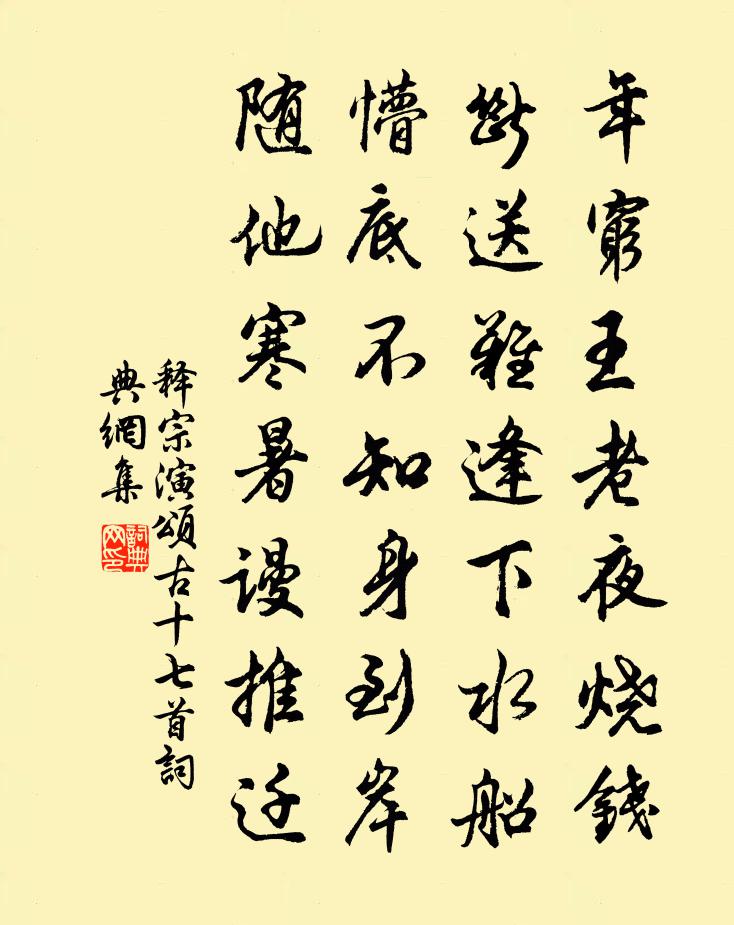 年窮王老夜烧錢
断送難逢下水船
懵底不知身到岸
随他寒暑谩推迁
释宗演頌古十七首詞
典網集
詞典
网印